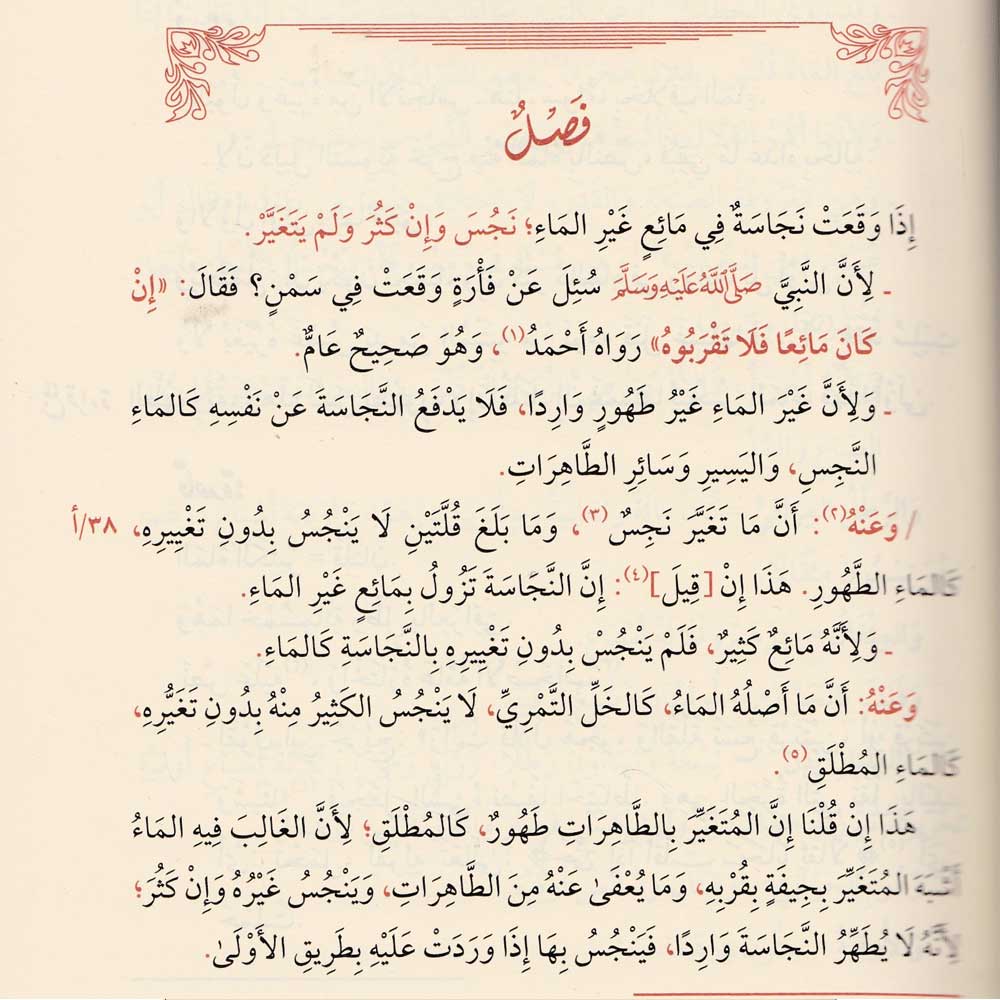 فَصْلٌ
إِذَا وَقَعَتْ نَجَاسَةٌ فِي مَائِعٍ غَيْرِ المَاءِ؛ نَجُسَ وَإِنْ كَثُرَ وَلَمْ يَتَغَيَّرْ.
ـ لِأَنَّ النَّبِيَّ صَلَّى اللَّهُ عَلَيْهِ وَسَلَّمَ سُئِلَ عَنْ فَأْرَةٍ وَقَعَتْ فِي سَمْنٍ؟ فَقَالَ: «إِنْ
كَانَ مَائِعًا فَلَا تَقْرَبُوهُ» رَوَاهُ أَحْمَدُ(١)، وَهُوَ صَحِيحٌ عَامٌّ.
ـ وَلِأَنَّ غَيْرَ المَاءِ غَيْرُ طَهُورٍ وَارِدًا، فَلَا يَدْفَعُ النَّجَاسَةَ عَنْ نَفْسِهِ كَالمَاءِ
النَّجِسِ، وَاليَسِيرِ وَسَائِرِ الطَّاهِرَاتِ.
/ وَعَنْهُ(٢): أَنَّ مَا تَغَيَّرَ نَجِسٌ(٣)، وَمَا بَلَغَ قُلَّتَيْنِ لَا يَنْجُسُ بِدُونِ تَغْيِيرِهِ، ٣٨/أ
كَالمَاءِ الطَّهُورِ. هَذَا إِنْ [قِيلَ](٤): إِنَّ النَّجَاسَةَ تَزُولُ بِمَائِعٍ غَيْرِ المَاءِ.
ـ وَلِأَنَّهُ مَائِعٌ كَثِيرٌ، فَلَمْ يَنْجُسْ بِدُونِ تَغْيِيرِهِ بِالنَّجَاسَةِ كَالمَاءِ.
وَعَنْهُ: أَنَّ مَا أَصْلُهُ المَاءُ، كَالخَلِّ التَّمْرِيِّ، لَا يَنْجُسُ الكَثِيرُ مِنْهُ بِدُونِ تَغَيُّرِهِ،
كَالمَاءِ المُطْلَقِ(٥).
هَذَا إِنْ قُلْنَا إِنَّ المُتَغَيِّرَ بِالطَّاهِرَاتِ طَهُورٌ، كَالمُطْلَقِ؛ لِأَنَّ الغَالِبَ فِيهِ المَاءُ
أَشْبَهَ المُتَغَيِّرَ بِجِيفَةٍ بِقُرْبِهِ، وَمَا يُعْفَىٰ عَنْهُ مِنَ الطَّاهِرَاتِ، وَيَنْجُسُ غَيْرُهُ وَإِنْ كَثُرَ؛
لِأَنَّهُ لَا يُطَهِّرُ النَّجَاسَةَ وَارِدًا، فَيَنْجُسُ بِهَا إِذَا وَرَدَتْ عَلَيْهِ بِطَرِيقِ الأَوْلَىٰ.